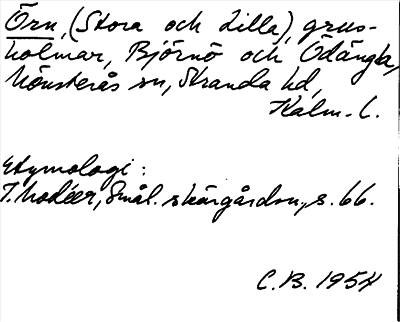 Örn, (Stora och Lilla), grus-
holmar, Björnö och Ödängla,
Mönsterås sn, Stranda hd,
Kalm. l.
Etymologi:
I. Modéer, Smål. skärgårdsn., s. 66.
C.B. 1954